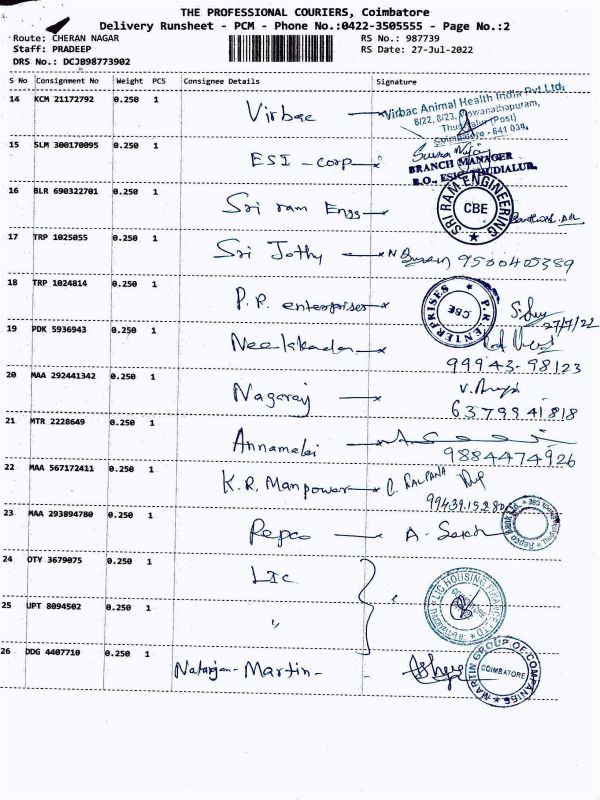 THE PROFESSIONAL COURIERS, Coimbatore
Delivery Runsheet - PCM - Phone No.:0422-3505555 - Page No.:2
Route: CHERAN NAGAR RS No.: 987739
Staff: PRADEEP RS Date: 27-Jul-2022
DRS No.: DCJB98773902
S No Consignment No Weight PCS Consignee Details Signature
14 KCM 21172792 0.250 1 Virbac
Virbac Animal Health India Pvt.Ltd.
8/22, 8/23, Viswanathapuram,
(Post)
Coimbatore - 641 034.
15 SLM 300170095 0.250 1 ESI - corp
BRANCH MANAGER
B.O., ESIC, THUDIALUR,
16 BLR 690322701 0.250 1 Sri ram Engs
SRI RAM ENGINEERING CBE
17 TRP 1025055 0.250 1 Sri Jothy
18 TRP 1024814 0.250 1 P.R. enterprises
P.R. ENTERPRISES CBE
27/7/22
19 PDK 5936943 0.250 1
99943-98123
20 MAA 292441342 0.250 1 Nagaraj
6379941818
21 MTR 2228649 0.250 1 Annamalai
9884474926
22 MAA 567172411 0.250 1 K.R. Manpower C. KALPANA
99439.15280
23 MAA 293894780 0.250 1 Repco
Repco Bank Ltd.
24 OTY 3679075 0.250 1 LIC
LIC HOUSING FINANCE LTD
25 UPT 8094502 0.250 1 "
26 DDG 4407710 0.250 1 Natarajan - Martin -
MARTIN GROUP OF COMPANIES COIMBATORE